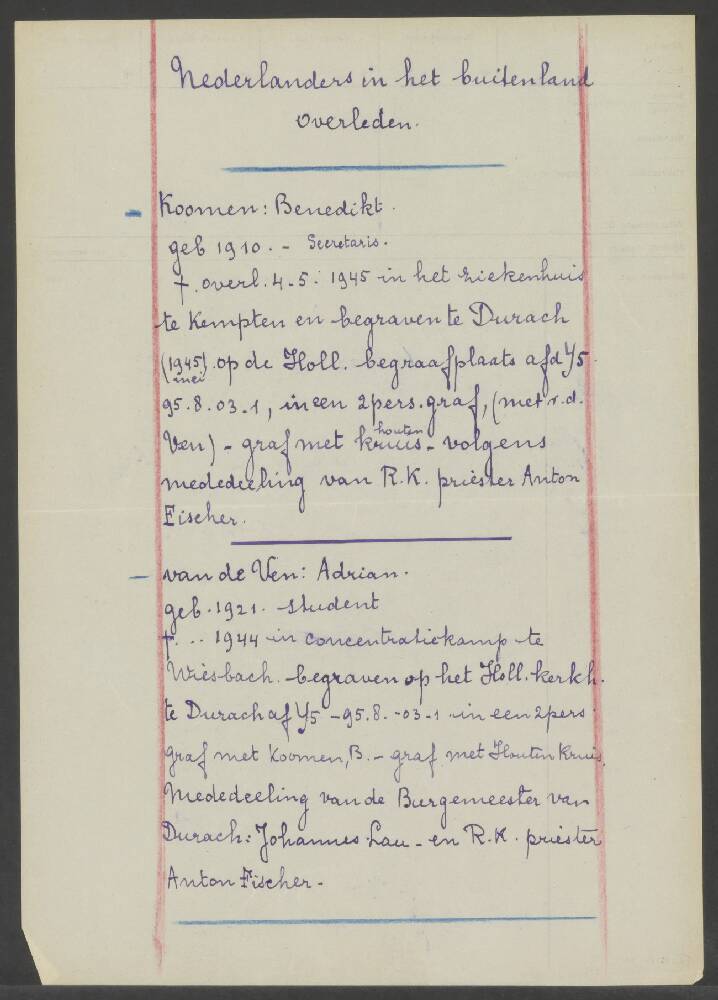 Nederlanders in het buitenland
overleden.
- Koomen: Benedikt.
geb 1910. - Secretaris.
†. overl. 4-5. 1945 in het ziekenhuis
te Kempten en begraven te Durach
(1945) op de Holl. begraafplaats afd Y5
mei
95.8.03.1, in een 2pers. graf, (met v.d.
houten
Ven) - graf met kruis - volgens
mededeeling van R.K. priester Anton
Fischer.
- van de Ven: Adrian.
geb. 1921. student
†. .. 1944 in concentratiekamp te
Wiesbach. begraven op het Holl. kerkh.
te Durach af Y5 - 95.8. -03-1 in een 2pers
graf met Koomen, B. - graf met Houten Kruis.
Mededeeling van de Burgemeester van
Durach: Johannes Lau - en R.K. priester
Anton Fischer -